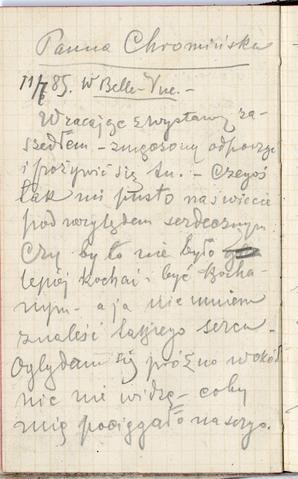 Panna Chromińska
11/7 85. W Belle-Vue.-
Wracając z wystawy za-
szedłem - zmęczony odpocząć
i pożywić się tu. - Czegoś
tak mi pusto na świecie
pod względem serdecznym.
Czy by to nie było
lepiéj kochać - być kocha-
nym - a ja nie umiem
znaleść takiego serca -
Oglądam się próżno wokół
nic nie widzę - coby
mię pociągało na seryo.